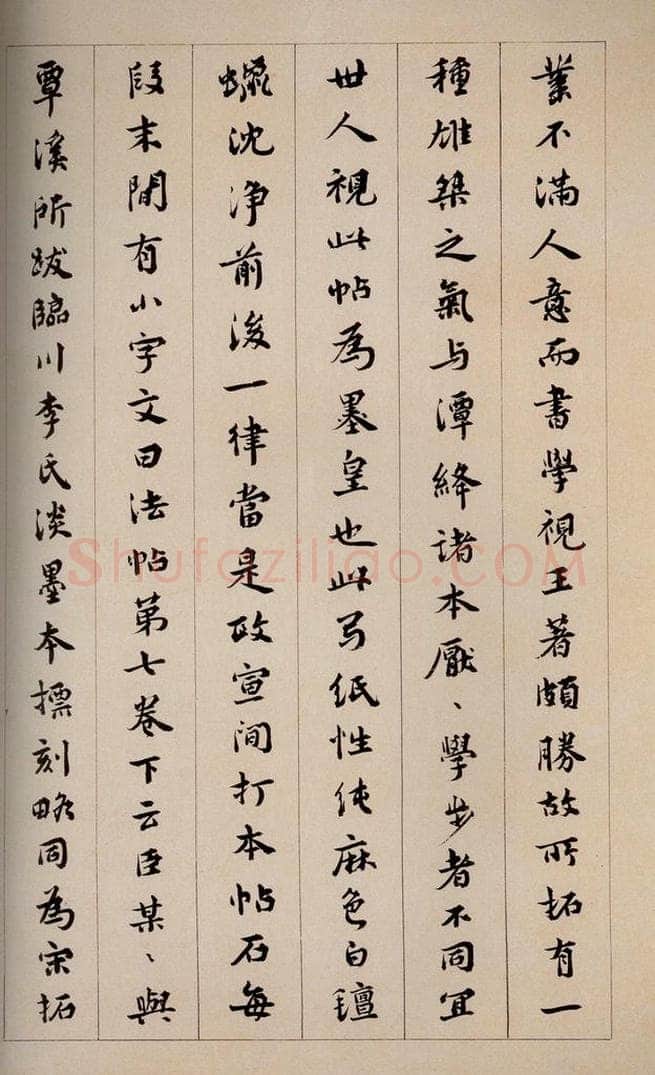 業不滿人意而書學視王著頗勝故所拓有一
種雄桀之氣与潭絳諸本厭、學步者不同宜
世人視此帖為墨皇也此弓紙性純麻色白氊
蠟沈净前後一律當是政宣間打本帖石每
段末間有小字文曰法帖第七卷下云臣某、與
覃溪所跋臨川李氏淡墨本標刻略同為宋拓
Shufaziliao.COM